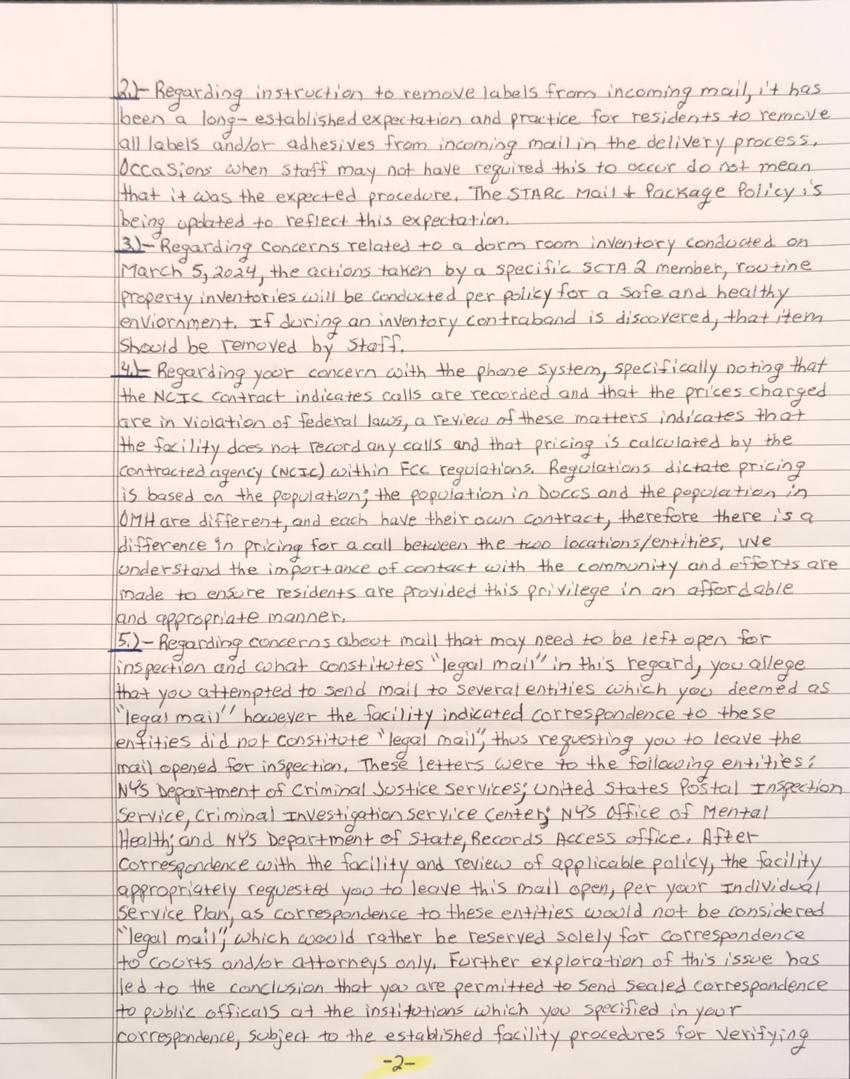 2.)- Regarding instruction to remove labels from incoming mail, it has
been a long-established expectation and practice for residents to remove
all labels and/or adhesives from incoming mail in the delivery process.
Occasions when staff may not have required this to occur do not mean
that it was the expected procedure. The STARC Mail + Package Policy is
being updated to reflect this expectation.
3.)- Regarding concerns related to a dorm room inventory conducted on
March 5, 2024, the actions taken by a specific SCTA 2 member, routine
property inventories will be conducted per policy for a safe and healthy
enviornment. If during an inventory contraband is discovered, that item
should be removed by staff.
4.)- Regarding your concern with the phone system, specifically noting that
the NCIC contract indicates calls are recorded and that the prices charged
are in violation of federal laws, a review of these matters indicates that
the facility does not record any calls and that pricing is calculated by the
contracted agency (NCIC) within FCC regulations. Regulations dictate pricing
is based on the population; the population in DOCCS and the population in
OMH are different, and each have their own contract, therefore there is a
difference in pricing for a call between the two locations/entities. We
understand the importance of contact with the community and efforts are
made to ensure residents are provided this privilege in an affordable
and appropriate manner.
5.)- Regarding concerns about mail that may need to be left open for
inspection and what constitutes "legal mail" in this regard, you allege
that you attempted to send mail to several entities which you deemed as
"legal mail" however the facility indicated correspondence to these
entities did not constitute "legal mail", thus requesting you to leave the
mail opened for inspection. These letters were to the following entities:
NYS Department of Criminal Justice Services; United States Postal Inspection
Service, Criminal Investigation Service Center; NYS Office of Mental
Health; and NYS Department of State, Records Access office. After
correspondence with the facility and review of applicable policy, the facility
appropriately requested you to leave this mail open, per your Individual
Service Plan, as correspondence to these entities would not be considered
"legal mail", which would rather be reserved solely for correspondence
to courts and/or attorneys only. Further exploration of this issue has
led to the conclusion that you are permitted to send sealed correspondence
to public officals at the institutions which you specified in your
correspondence, subject to the established facility procedures for verifying
-2-